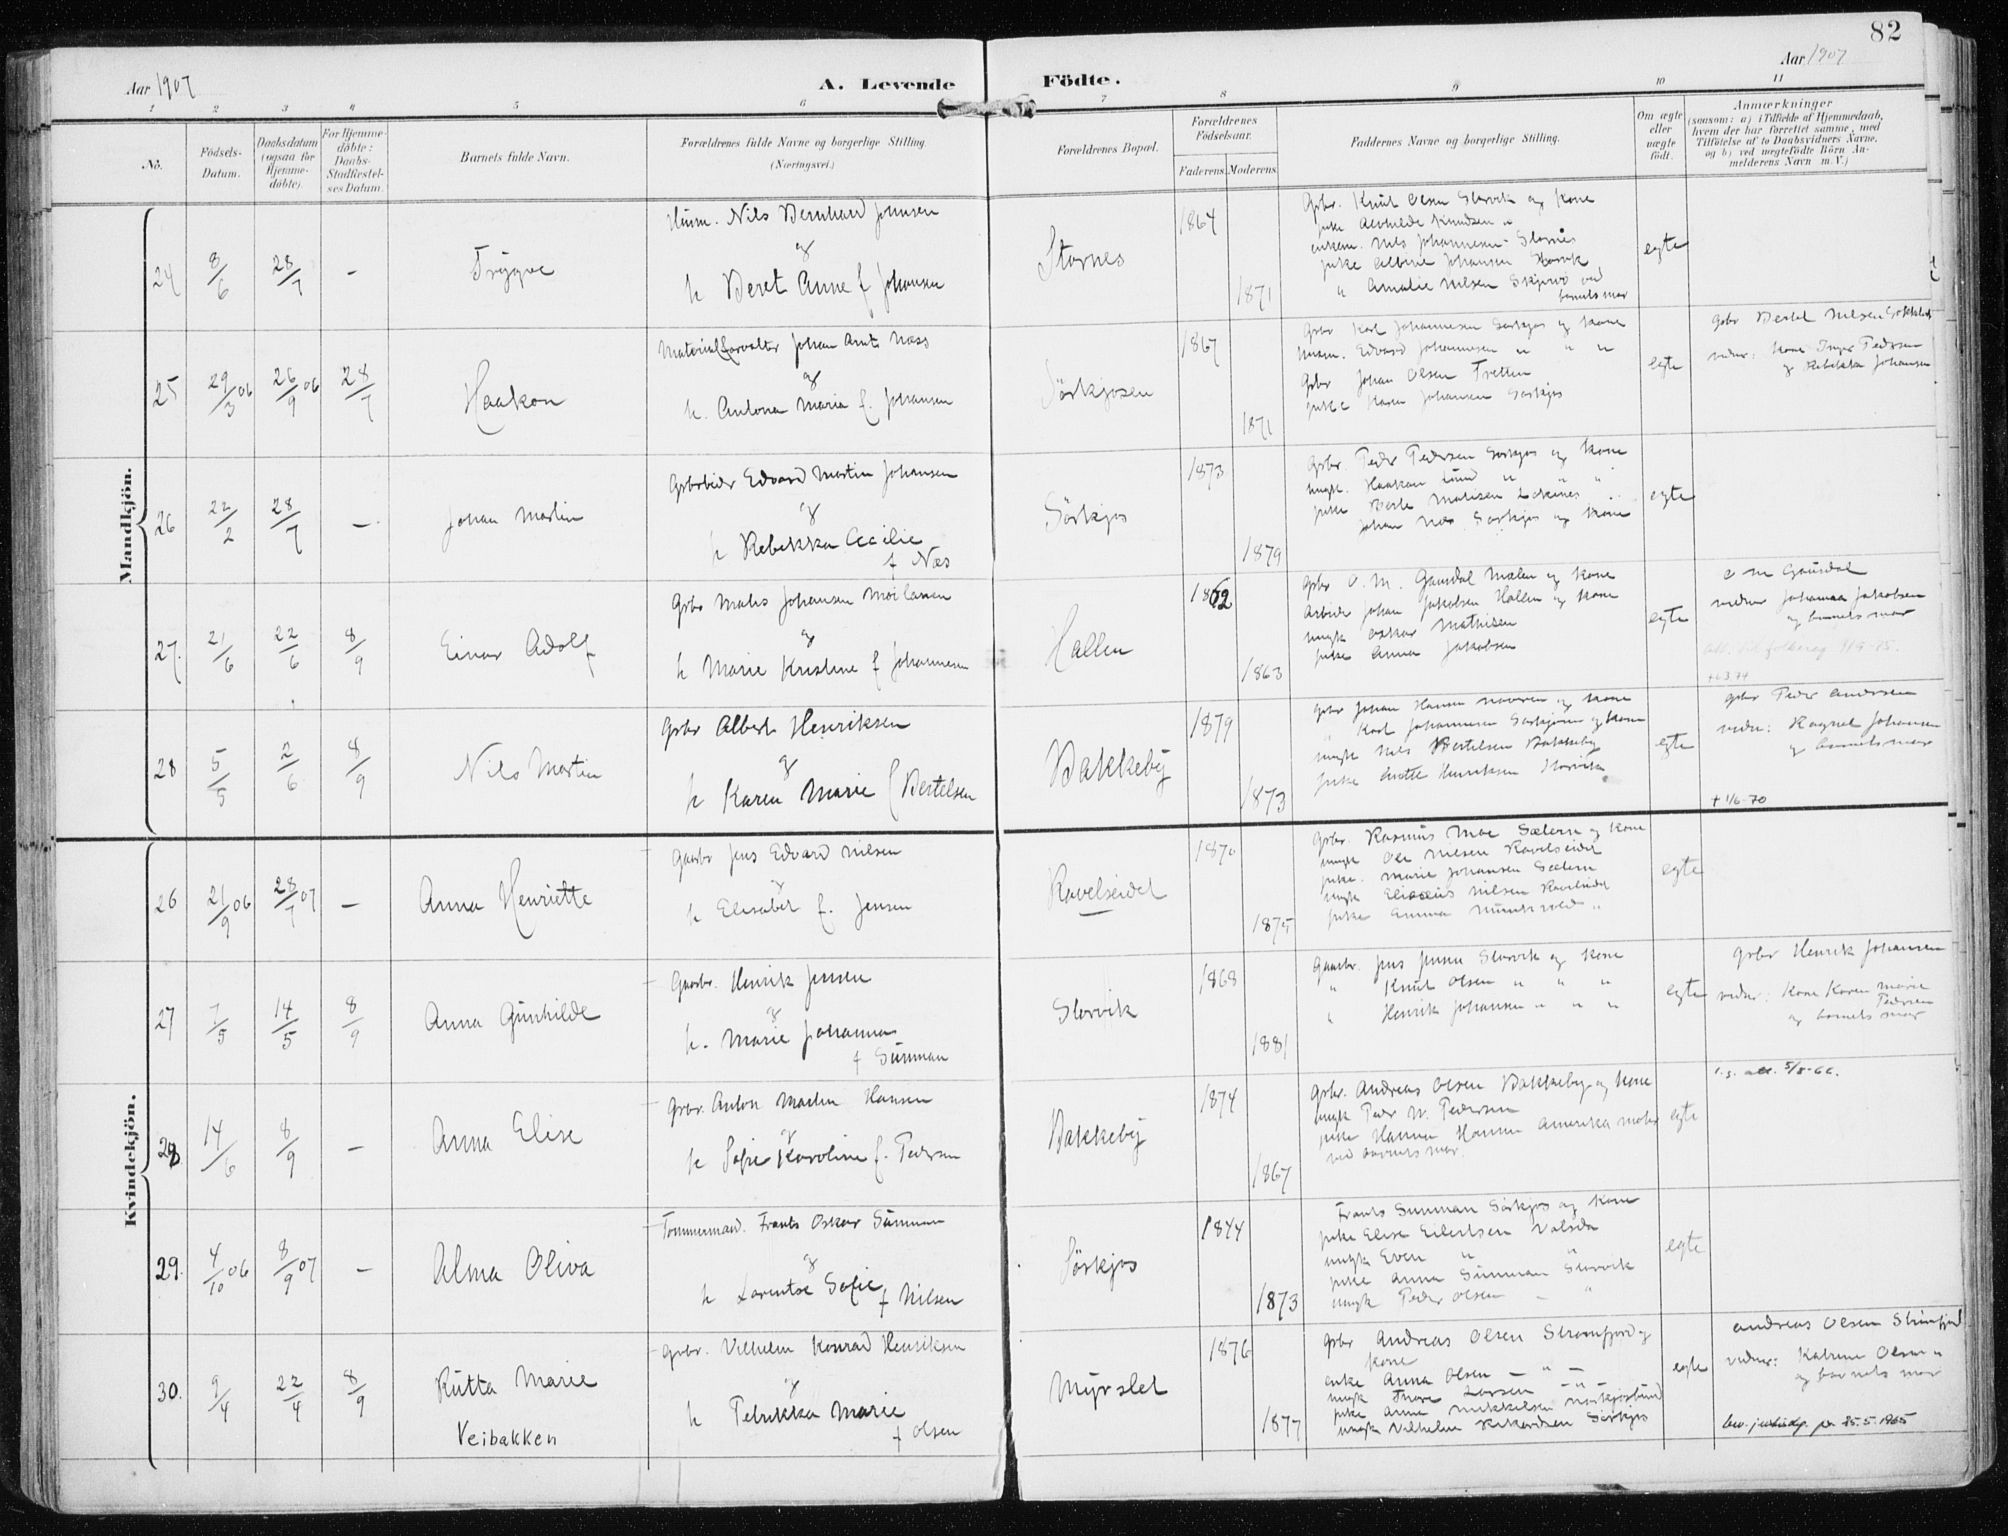 82
Aar 1907
A. Levende Födte.
Aar 1907
1 2 3 4 5 6 7 8 9 10 11
No.
Födsels-Datum.
Daabsdatum (ogsaa for Hjemme-döbte).
For Hjemme-döbte: Daabs-Stadfæstel-ses Datum.
Barnets fulde Navn.
Forældrenes fulde Navne og borgerlige Stilling.
(Næringsvei.)
Forældrenes Bopæl.
Forældrenes Födselsaar.
Faderens. Moderens.
Faddernes Navne og borgerlige Stilling.
Om ægte eller uægte födt.
Anmærkninger
(saasom: a) i Tilfælde af Hjemmedaab,
hvem der har forrettet samme, med
Tilföielse af to Daabsvidners Navne,
og b) ved uægtefödte Börn An-
melderens Navn m. V.)
Mandkjön.
24 8/6 28/7 - Trygve
Husm. Nils Bernhard Johnsen
og
h Beret Anne f Johansen
Stornes
1864
1871
Gbr. Knut Olsen Storvik og kone
pike Alvhilde Knudsen
enkem. Nils Johannesen Stornes
pike Albine Johansen Storvik
" Amalie Nilsen Skjervö ved
barnets mor
egte
25 29/3 06 26/9 06 28/7 Haakon
Materialforvalter Johan Arnt Næss
og
h. Antona Maria f. Johansen
Sörkjosen
1867
1871
Gbr Karl Johannesen Sörkjos og kone
husm. Edvard Johannesen " " "
Gbr Johan Olsen Fretten
pike Karen Johansen Sörkjos
egte
gbr Bertel Nilsen
vidner: kone Inger Pedersen
og Rebekka Johansen
26 22/2 28/7 - Johan Martin
Gbrbider Edvard Martin Johansen
og
h Rebekka Cecilie
f Næs
Sörkjos
1873
1879
Gbr. Peder Pedersen Sörkjos og kone
ungk. Haakon Lund " " "
pike Berte Mathisen
Johan Næs Sörkjos og kone
egte
27. 21/6 22/6 8/9 Einar Adolf
Gbr Mathis Johansen Moilanen
og
h Marie Kristine f Johannesen
Hallen
1862
1863
Gbr O. M. Gausdal Mælen og kone
Arbeider Johan Jakobsen Hallen og kone
ungk Oskar Mathisen
pike Anna Jakobsen
egte
O M Gausdal
vidner Johanna Jakobsen
og barnets mor
28 5/5 2/6 8/9 Nils Martin
Gbr Albert Henriksen
og
h Karen Marie f Bertelsen
Bakkeby
1879
1873
gbr Johan Hansen og kone
" Karl Johannesen Sörkjosen og kone
ungk Nils Bertelsen Bakkeby
pike Anette Henriksen Storvik
egte
gbr Peder Andersen
vidn: Ragnel Johansen
og barnets mor
+ 1/6-70
Kvindekjön.
26 21/9 06 28/7 07 - Anna Henriette
Gaardbr Jens Edvard Nilsen
og
h Elisabet f. Jensen
Ravelseidet
1870
1875
Gbr. Rasmus Moe Sælern og kone
ungk Ole Nilsen Ravelseidet
pike. Marie Johansen Sælern
ungk Eliseus Nilsen Ravelseidet
pike Emma "
egte
27 7/5 14/5 8/9 Anna Gunhilde
Gaardbr. Henrik Jensen
og
h. Marie Johanna
f Sunman
Storvik
1868
1881
Gaardbr. Jens Jensen Storvik og kone
" Knut Olsen " " "
" Henrik Johansen " " "
egte
gbr Henrik Johansen
vidner: Kone Karen Marie
Pedersen
og barnets mor
28 14/6 8/9 - Anna Elise
Gbr. Anton Martin Hansen
og
h Sofie Karoline f. Pedersen
Bakkeby
1874
1867
Gbr. Andreas Olsen Bakkeby og kone
ungk Peder N. Pedersen
pike Hanna Hansen Amerika moter
ved barnets mor.
egte
att. 5/8-66.
29. 4/10 06 8/9 07 - Alma Oliva
Tömmermand. Frants Oskar Sunman
og
h Lorentse Sofie
f Nilsen
Sörkjos
1844
1873
Frants Sunman Sörkjos og kone
pike Elise Eilertsen
ungk Even "
pike Anna Sunman Storvik
ungk Peder Olsen - "
egte
30. 9/4 22/4 8/9 Rutta Marie
Veibakken
gbr. Vilhelm Konrad Henriksen
og
h Petrikka Marie
f Olsen
Myrslet
1876
1877
Gbr Andreas Olsen Straumfjord og
kone
enke Anna Olsen - " -
ungk Thore Larsen - " -
pike Anna Mikkelsen Nordkjosbund
ungk Vilhelm Rikardsen Sörkjos
egte
Andreas Olsen Straumfjord
vidner: Katrine Olsen "
og barnets mor
25.5.1965